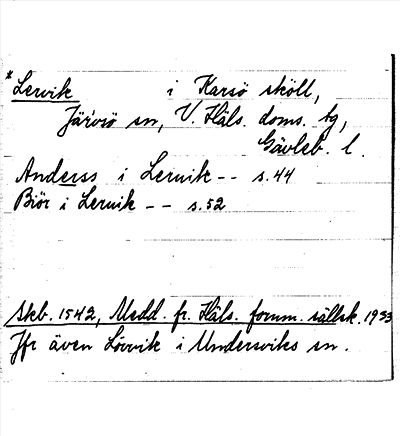 *Lervik i Karsö sköll,
Järvsö sn, V. Häls. doms. tg,
Gävleb. l.
Anderss i Lervik -- s. 44
Biör i Lervik -- s. 52
Skb. 1542, Medd. fr. Häls. fornm. sällsk. 1933
Jfr även Lövvik i Undersviks sn.